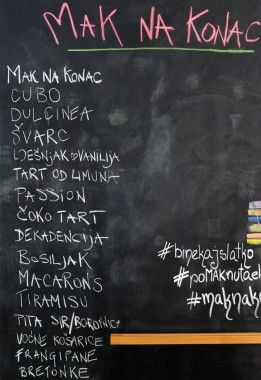 MAK NA KONAC
MAK NA KONAC
CUBO
DULCINEA
ŠVARC
LJEŠNJAK & VANILIJA
TART OD LIMUNA
PASSION
ČOKO TART
DEKADENCIJA
BOSILJAK
MACARONS
TIRAMISU
PITA SIR/BOROVNICA
VOĆNE KOŠARICE
FRANGIPANE
BRETONKE
#binekajslatko
#poMAKnutael
#maknak